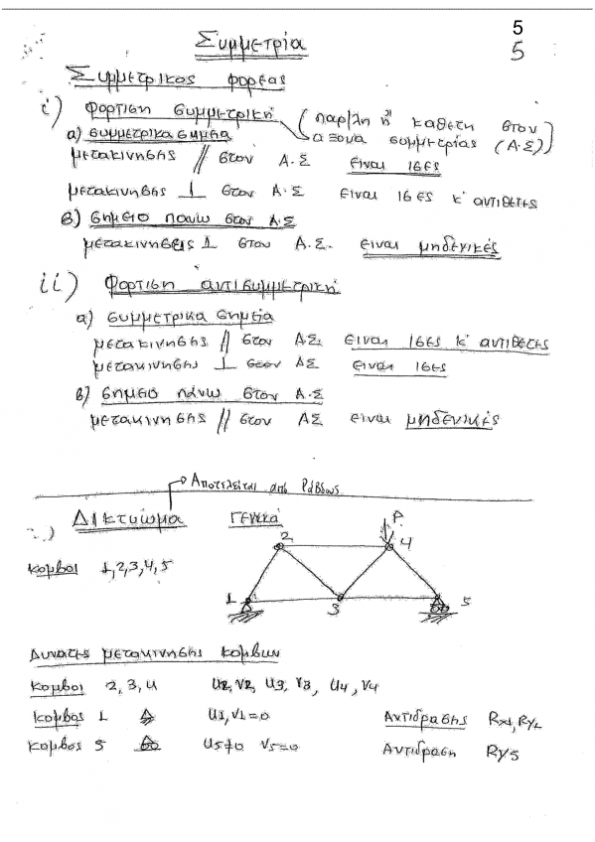 5
5
Συμμετρία
Συμμετρικος φορεας
i) Φορτιση συμμετρική (παρ/λη ή καθετη στον
αξονα συμμετρίας (Α.Σ))
α) συμμετρικα σημεια
μετακινησης // στον Α.Σ ειναι ισες
μετακινησης ⊥ στον Α.Σ ειναι ισες κ' αντιθετες
β) σημειο πανω στον Α.Σ
μετακινησεις ⊥ στον Α.Σ. ειναι μηδενικές
ii) Φορτιση αντισυμμετρική
α) συμμετρικα σημεία
μετακινησης // στον ΑΣ. ειναι ισες κ' αντιθετης
μετακινησης ⊥ στον ΑΣ ειναι ισες
β) σημειο πάνω στον Α.Σ
μετακινησης // στον ΑΣ ειναι μηδενικές
Αποτελείται από Ράβδους
Δικτυωμα Γενικά
P
2 4
κομβοι 1,2,3,4,5
1 3 5
Δυνατες μετακινησης κομβων
Κομβοι 2, 3, 4 u2, v2, u3, v3, u4, v4
Κομβος 1 u1, v1=0 Αντιδρασης Rx1, Ry1
Κομβος 5 u5≠0 v5=0 Αντιδραση Ry5